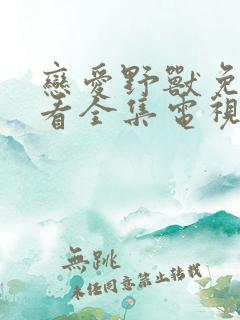 戀愛野獸免
看全集電視
無跳
未經同意禁止轉載